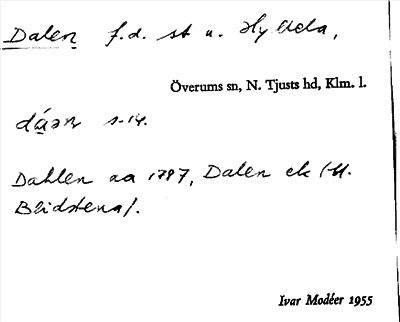 Dalen f.d. st u. Hyllela,
Överums sn, N. Tjusts hd, Klm. l.
dáən s. 14.
Dahlen aa 1787, Dalen ek (U.
Blidstena).
Ivar Modéer 1955